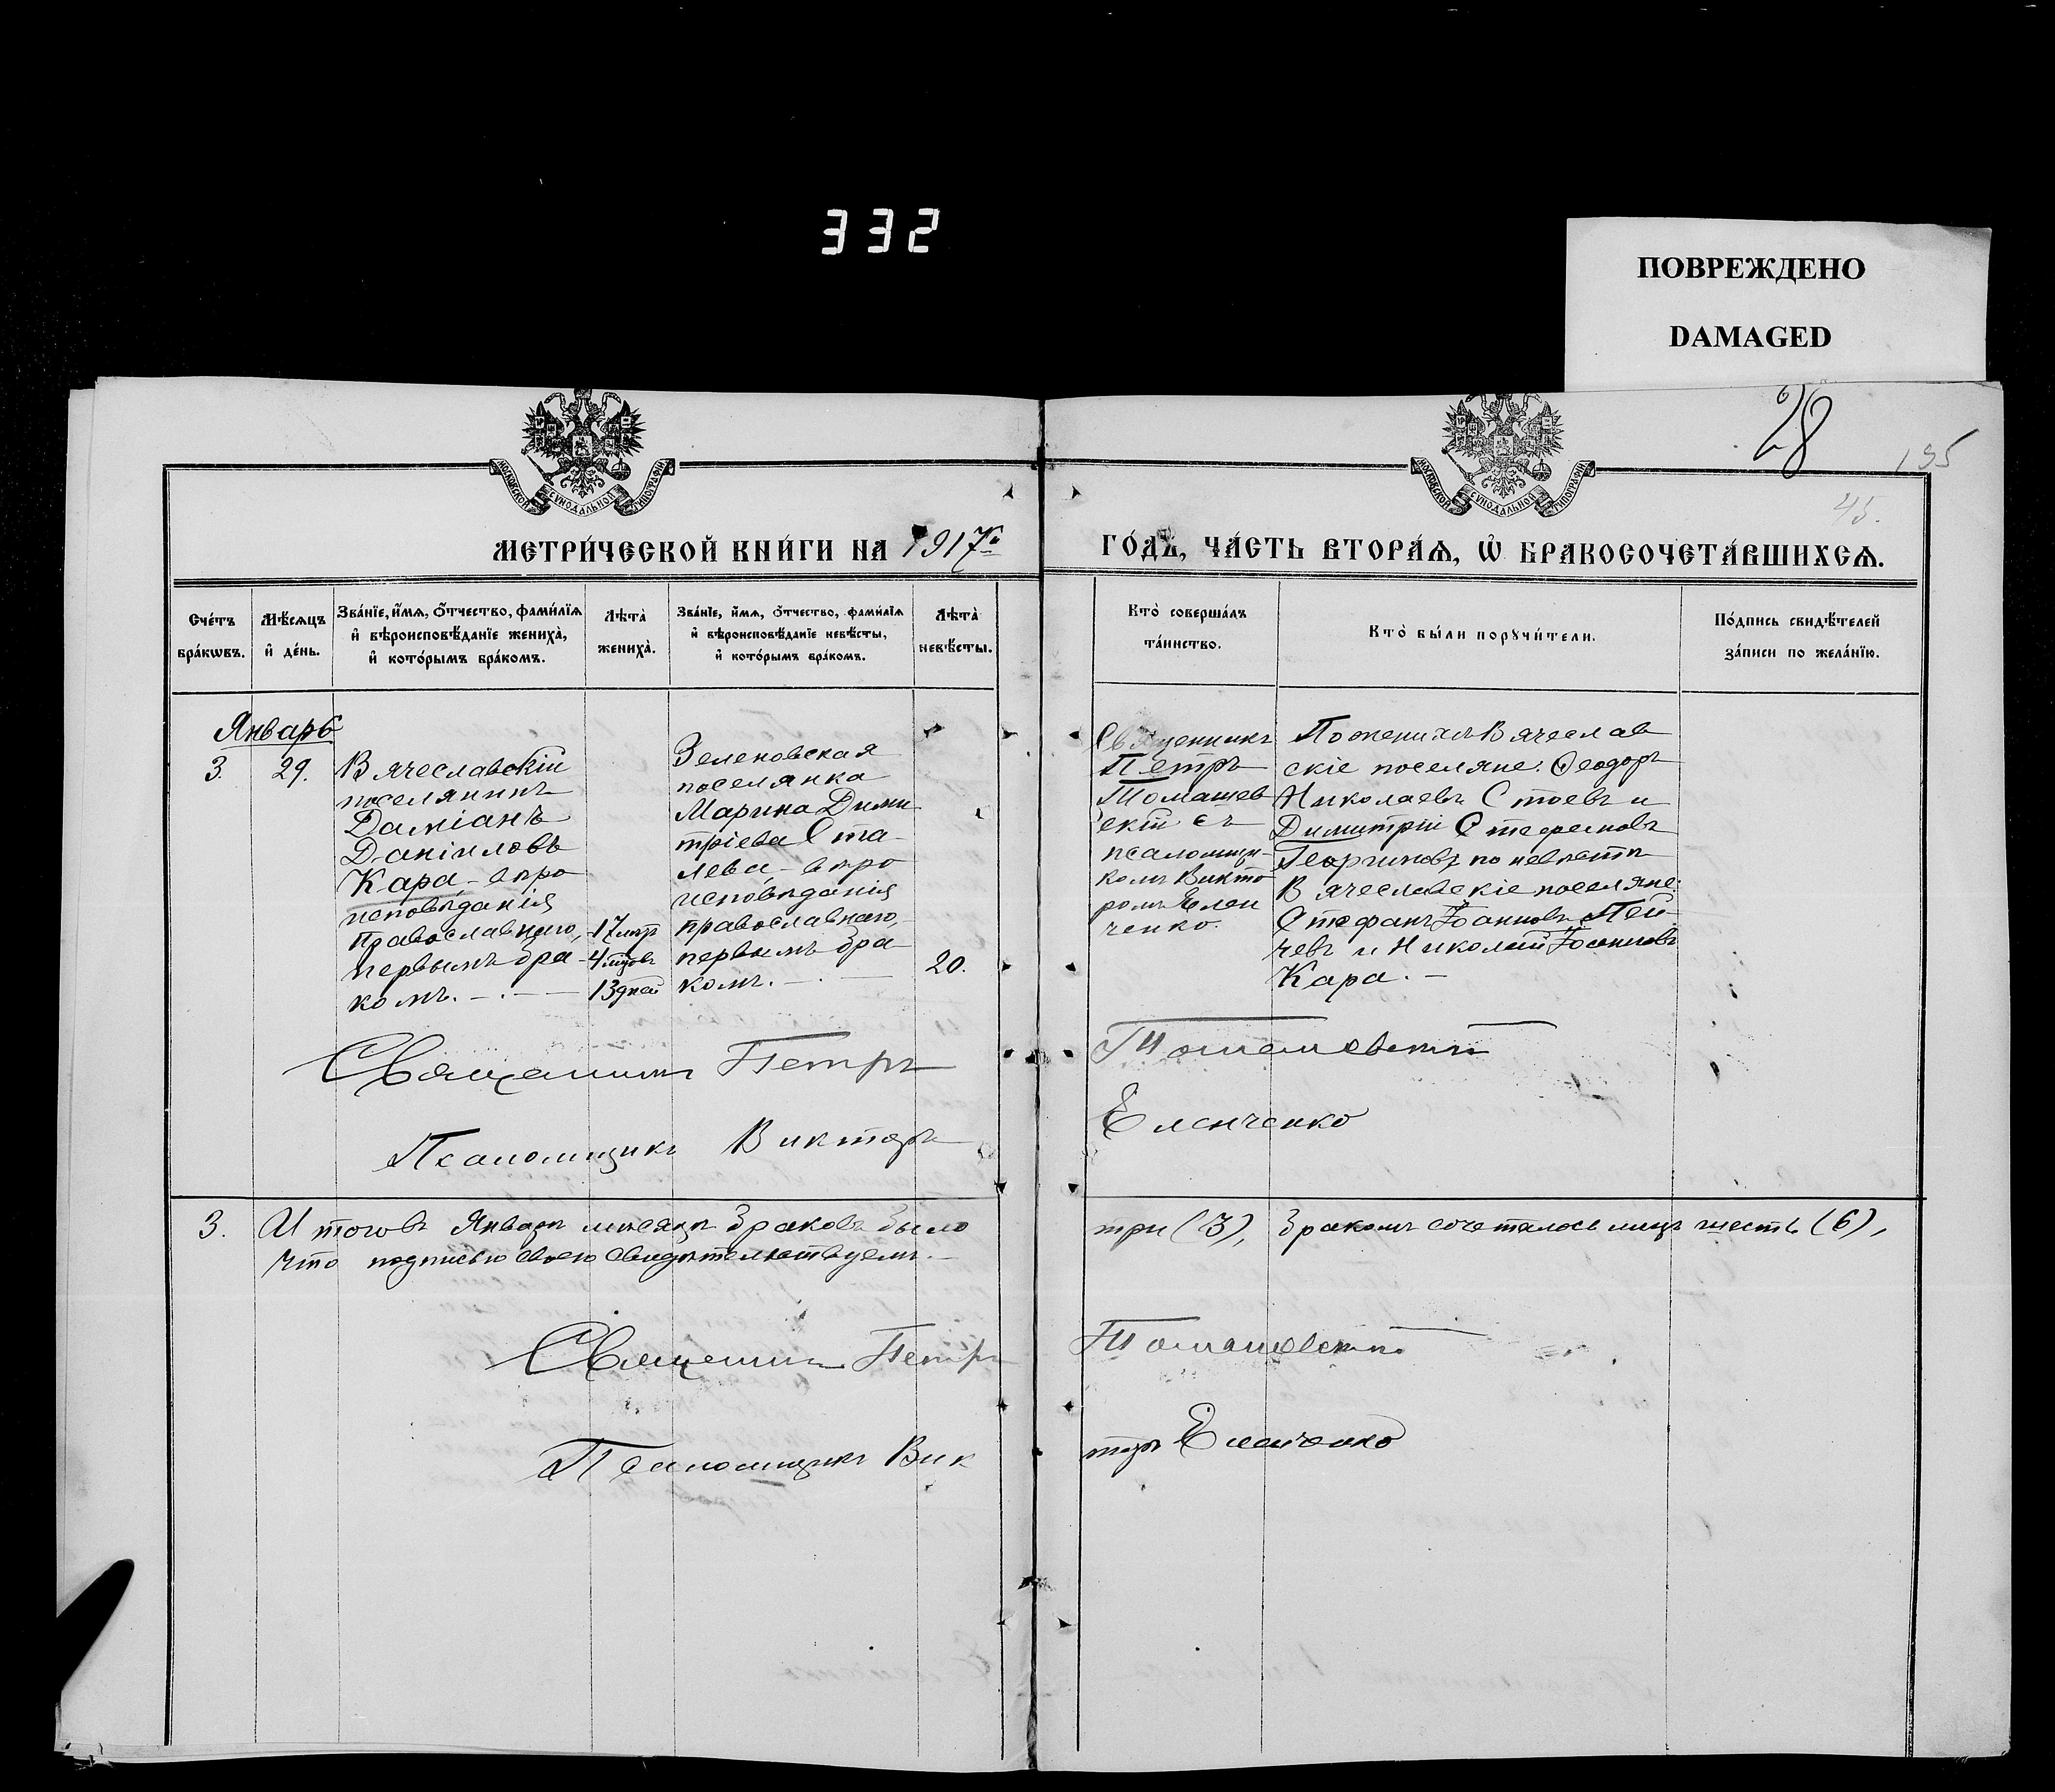 332
ПОВРЕЖДЕНО
DAMAGED
28
195
45.
МОСКОВСКОЙ СѴНОДАЛЬНОЙ ТИПОГРАФІИ
МОСКОВСКОЙ СѴНОДАЛЬНОЙ ТИПОГРАФІИ
МЕТРИ́ЧЕСКОЙ КНИ́ГИ НА 1917й
ГО́ДЪ, ЧА́СТЬ ВТОРА́Ѧ, Ѿ БРАКОСОЧЕТА́ВШИХСѦ.
Сче́тъ бра́кѡвъ.
Мѣ́сѧцъ и҆ де́нь.
Зва́нїе, и҆́мѧ, ѻ҆́тчество, фами́лїѧ и҆ вѣроисповѣ́данїе жениха̀, и҆ кото́рымъ бра́комъ.
Лѣ́та̀ жениха̀.
Зва́нїе, и҆́мѧ, ѻ҆́тчество, фами́лїѧ и҆ вѣроисповѣ́данїе невѣ́сты, и҆ кото́рымъ бра́комъ.
Лѣ́та̀ невѣ́сты.
Кто̀ соверша́лъ та́инство.
Кто̀ бы́ли порꙋчи́тели.
По́дпись свидѣ́телей за́писи по жела́нїю.
Январь
3.
29.
Вячеславскій
поселянинъ
Даміанъ
Даніиловъ
Кара, - впро
исповѣданія
Православнаго,
первымъ бра-
комъ. - . -
17 лѣтъ
4 мцовъ
13 дней
Зеленовская
поселянка
Марина Дими
тріева Ста-
лева - впро
исповѣданія
православнаго,
первымъ бра
комъ. - . -
20.
Священникъ
Петръ
Томашев
скій съ
псаломщи-
комъ Викто
ромъ Елен
ченко.
По женихѣ Вячеслав
скіе поселяне: Ѳеодоръ
Николаевъ Стоевъ и
Димитрій Стефановъ
Георгиновъ по невѣстѣ
Вячеславскіе поселяне:
Стефанъ Іоанновъ Пей-
чевъ и Николай Іоанновъ
Кара. -
Священникъ Петръ Томашевскій
Псаломщикъ Викторъ Еленченко
3. Итого въ Январѣ мѣсяцѣ браковъ было три (3), бракомъ сочеталось лицъ шесть (6),
что подписью своею свидѣтельствуемъ. -
Священникъ Петръ Томашевскій
Псаломщикъ Викторъ Еленченко